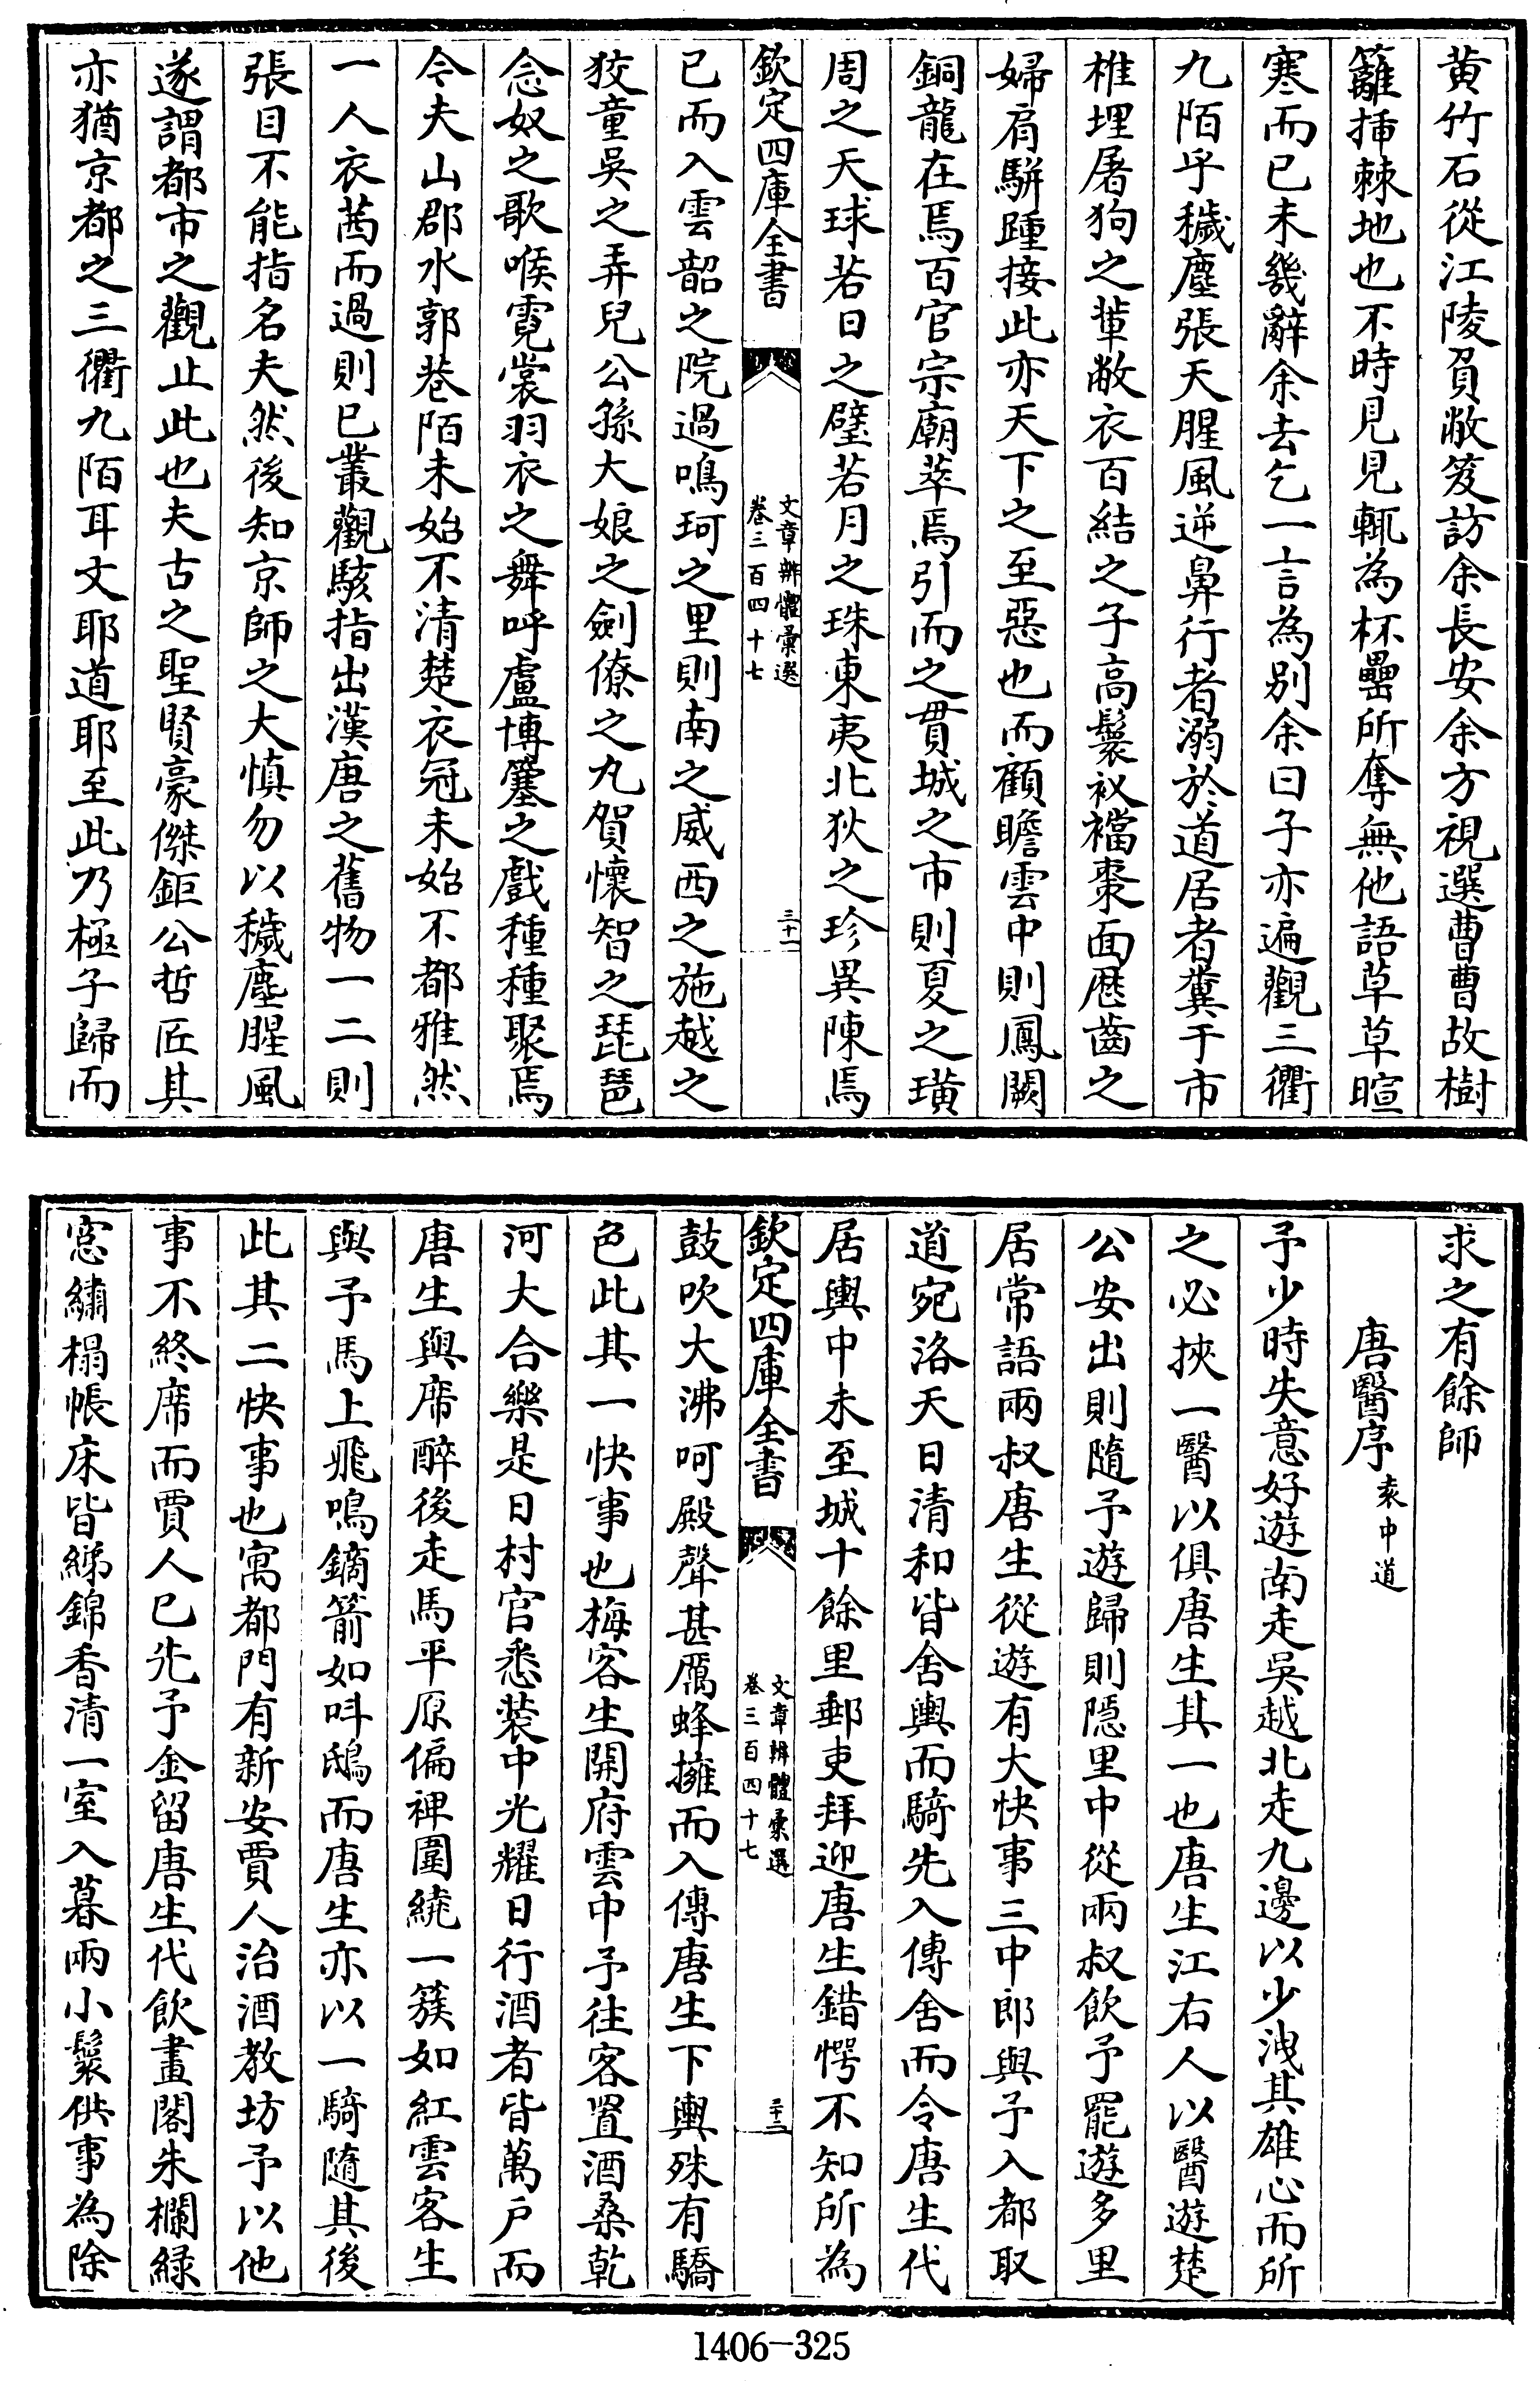 黄竹石從江陵負敝笈訪余長安余方視選曹曹故樹
籬挿棘地也不時見見輒為杯罍所奪無他語草草暄
寒而已未幾辭余去乞一言為别余曰子亦遍觀三衢
九陌乎穢塵張天腥風逆鼻行者溺於道居者糞于市
椎埋屠狗之輩敝衣百結之子高鬟衩襠棗面歴齒之
婦肩騈踵接此亦天下之至惡也而顧瞻雲中則鳳闕
銅龍在焉百官宗廟萃焉引而之貫城之市則夏之璜
周之天球若日之璧若月之珠東夷北狄之珍異陳焉
欽定四庫全書
文章辨體彙選
卷三百四十七
三十一
已而入雲韶之院過鳴珂之里則南之威西之施越之
狡童吳之弄兒公孫大娘之劍僚之丸賀懷智之琵琶
念奴之歌喉霓裳羽衣之舞呼盧博簺之戲種種聚焉
今夫山郡水郭巷陌未始不清楚衣冠未始不都雅然
一人衣茜而過則已叢觀駭指出漢唐之舊物一二則
張目不能指名夫然後知京師之大慎勿以穢塵腥風
遂謂都市之觀止此也夫古之聖賢豪傑鉅公哲匠其
亦猶京都之三衢九陌耳文耶道耶至此乃極子歸而
求之有餘師
唐醫序
袁中道
予少時失意好遊南走吳越北走九邊以少洩其雄心而所
之必挾一醫以俱唐生其一也唐生江右人以醫遊楚
公安出則隨予遊歸則隱里中從兩叔飲予罷遊多里
居常語兩叔唐生從遊有大快事三中郎與予入都取
道宛洛天日清和皆舍輿而騎先入傳舍而令唐生代
居輿中未至城十餘里郵吏拜迎唐生錯愕不知所為
欽定四庫全書
文章辨體彙選
卷三百四十七
三十二
鼓吹大沸呵殿聲甚厲蜂擁而入傳唐生下輿殊有驕
色此其一快事也梅客生開府雲中予往客置酒桑乾
河大合樂是日村官悉装中光耀日行酒者皆萬戶而
唐生與席醉後走馬平原偏裨圍繞一簇如紅雲客生
與予馬上飛鳴鏑箭如呌鴟而唐生亦以一騎隨其後
此其二快事也寓都門有新安賈人治酒教坊予以他
事不終席而賈人已先予金留唐生代飲畫閣朱欄緑
窓繡榻帳床皆綈錦香清一室入暮兩小鬟供事為除
1406-325